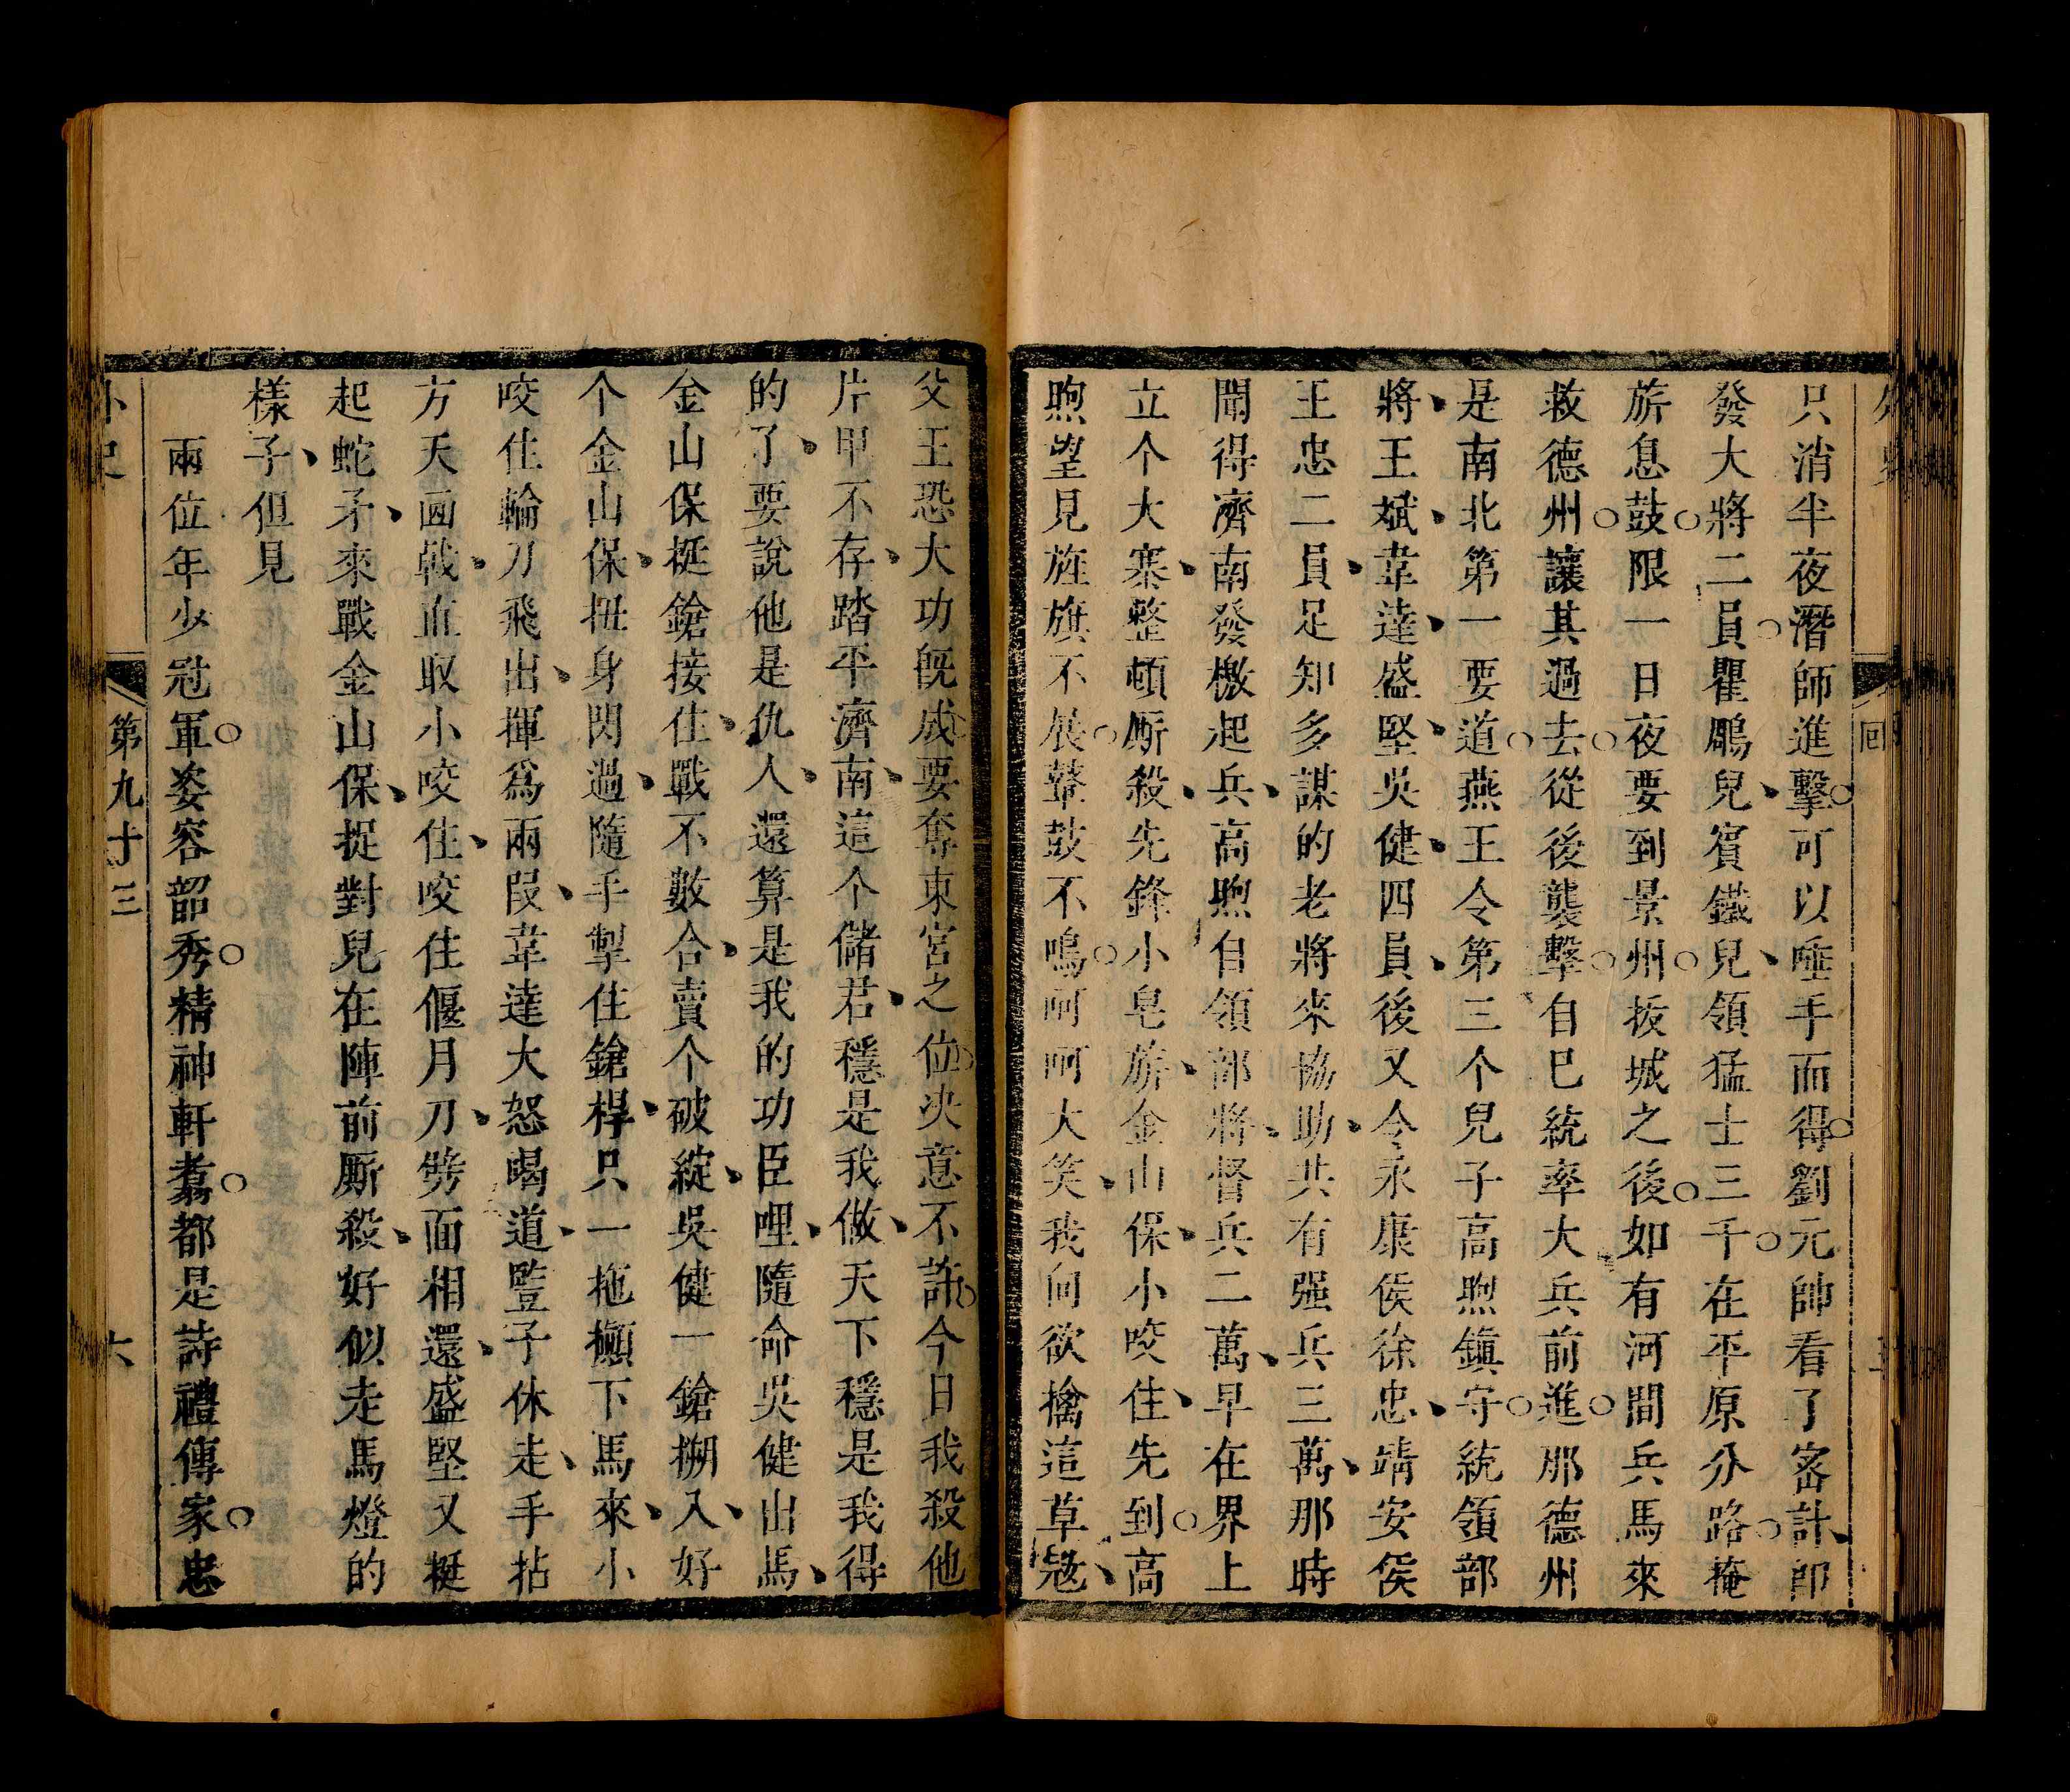 只消半夜潛師進擊可以唾手而得劉元帥看了密計即
發大將二員瞿鵰兒賓鐵兒領猛士三千在平原分路掩
旂息鼓限一日夜要到景州扳城之後如有河間兵馬來
救德州讓其過去從後襲擊自巳統率大兵前進那德州
是南北第一要道燕王令第三个兒子高煦鎮守統領部
將王斌韋達盛堅吳健四員後又令永康侯徐忠靖安侯
王忠二員足知多謀的老將來協助共有强兵三萬那時
聞得濟南發檄起兵高煦自領部將督兵二萬早在界上
立个大寨整頓厮殺先鋒小皂旂金山保小咬住先到高
煦望見旌旗不展鼙鼓不鳴呵呵大笑我向欲擒這草寇
父王恐大功旣成要奪東宮之位决意不許今日我殺他
片甲不存踏平濟南這个儲君穩是我做天下穩是我得
的了要說他是仇人還算是我的功臣哩隨命吳健出馬
金山保挺鎗接住戰不數合賣个破綻吳健一鎗搠入好
个金山保扭身閃過隨手掣住鎗桿只一拖攧下馬來小
咬住輪刀飛出揮爲兩段韋達大怒喝道豎子休走手拈
方天画戟直取小咬住咬住偃月刀劈面相還盛堅又挺
起蛇矛來戰金山保捉對兒在陣前厮殺好似走馬燈的
樣子但見
兩位年少冠軍姿容韶秀精神軒翥都是詩禮傳家忠
外史
第九十三
六